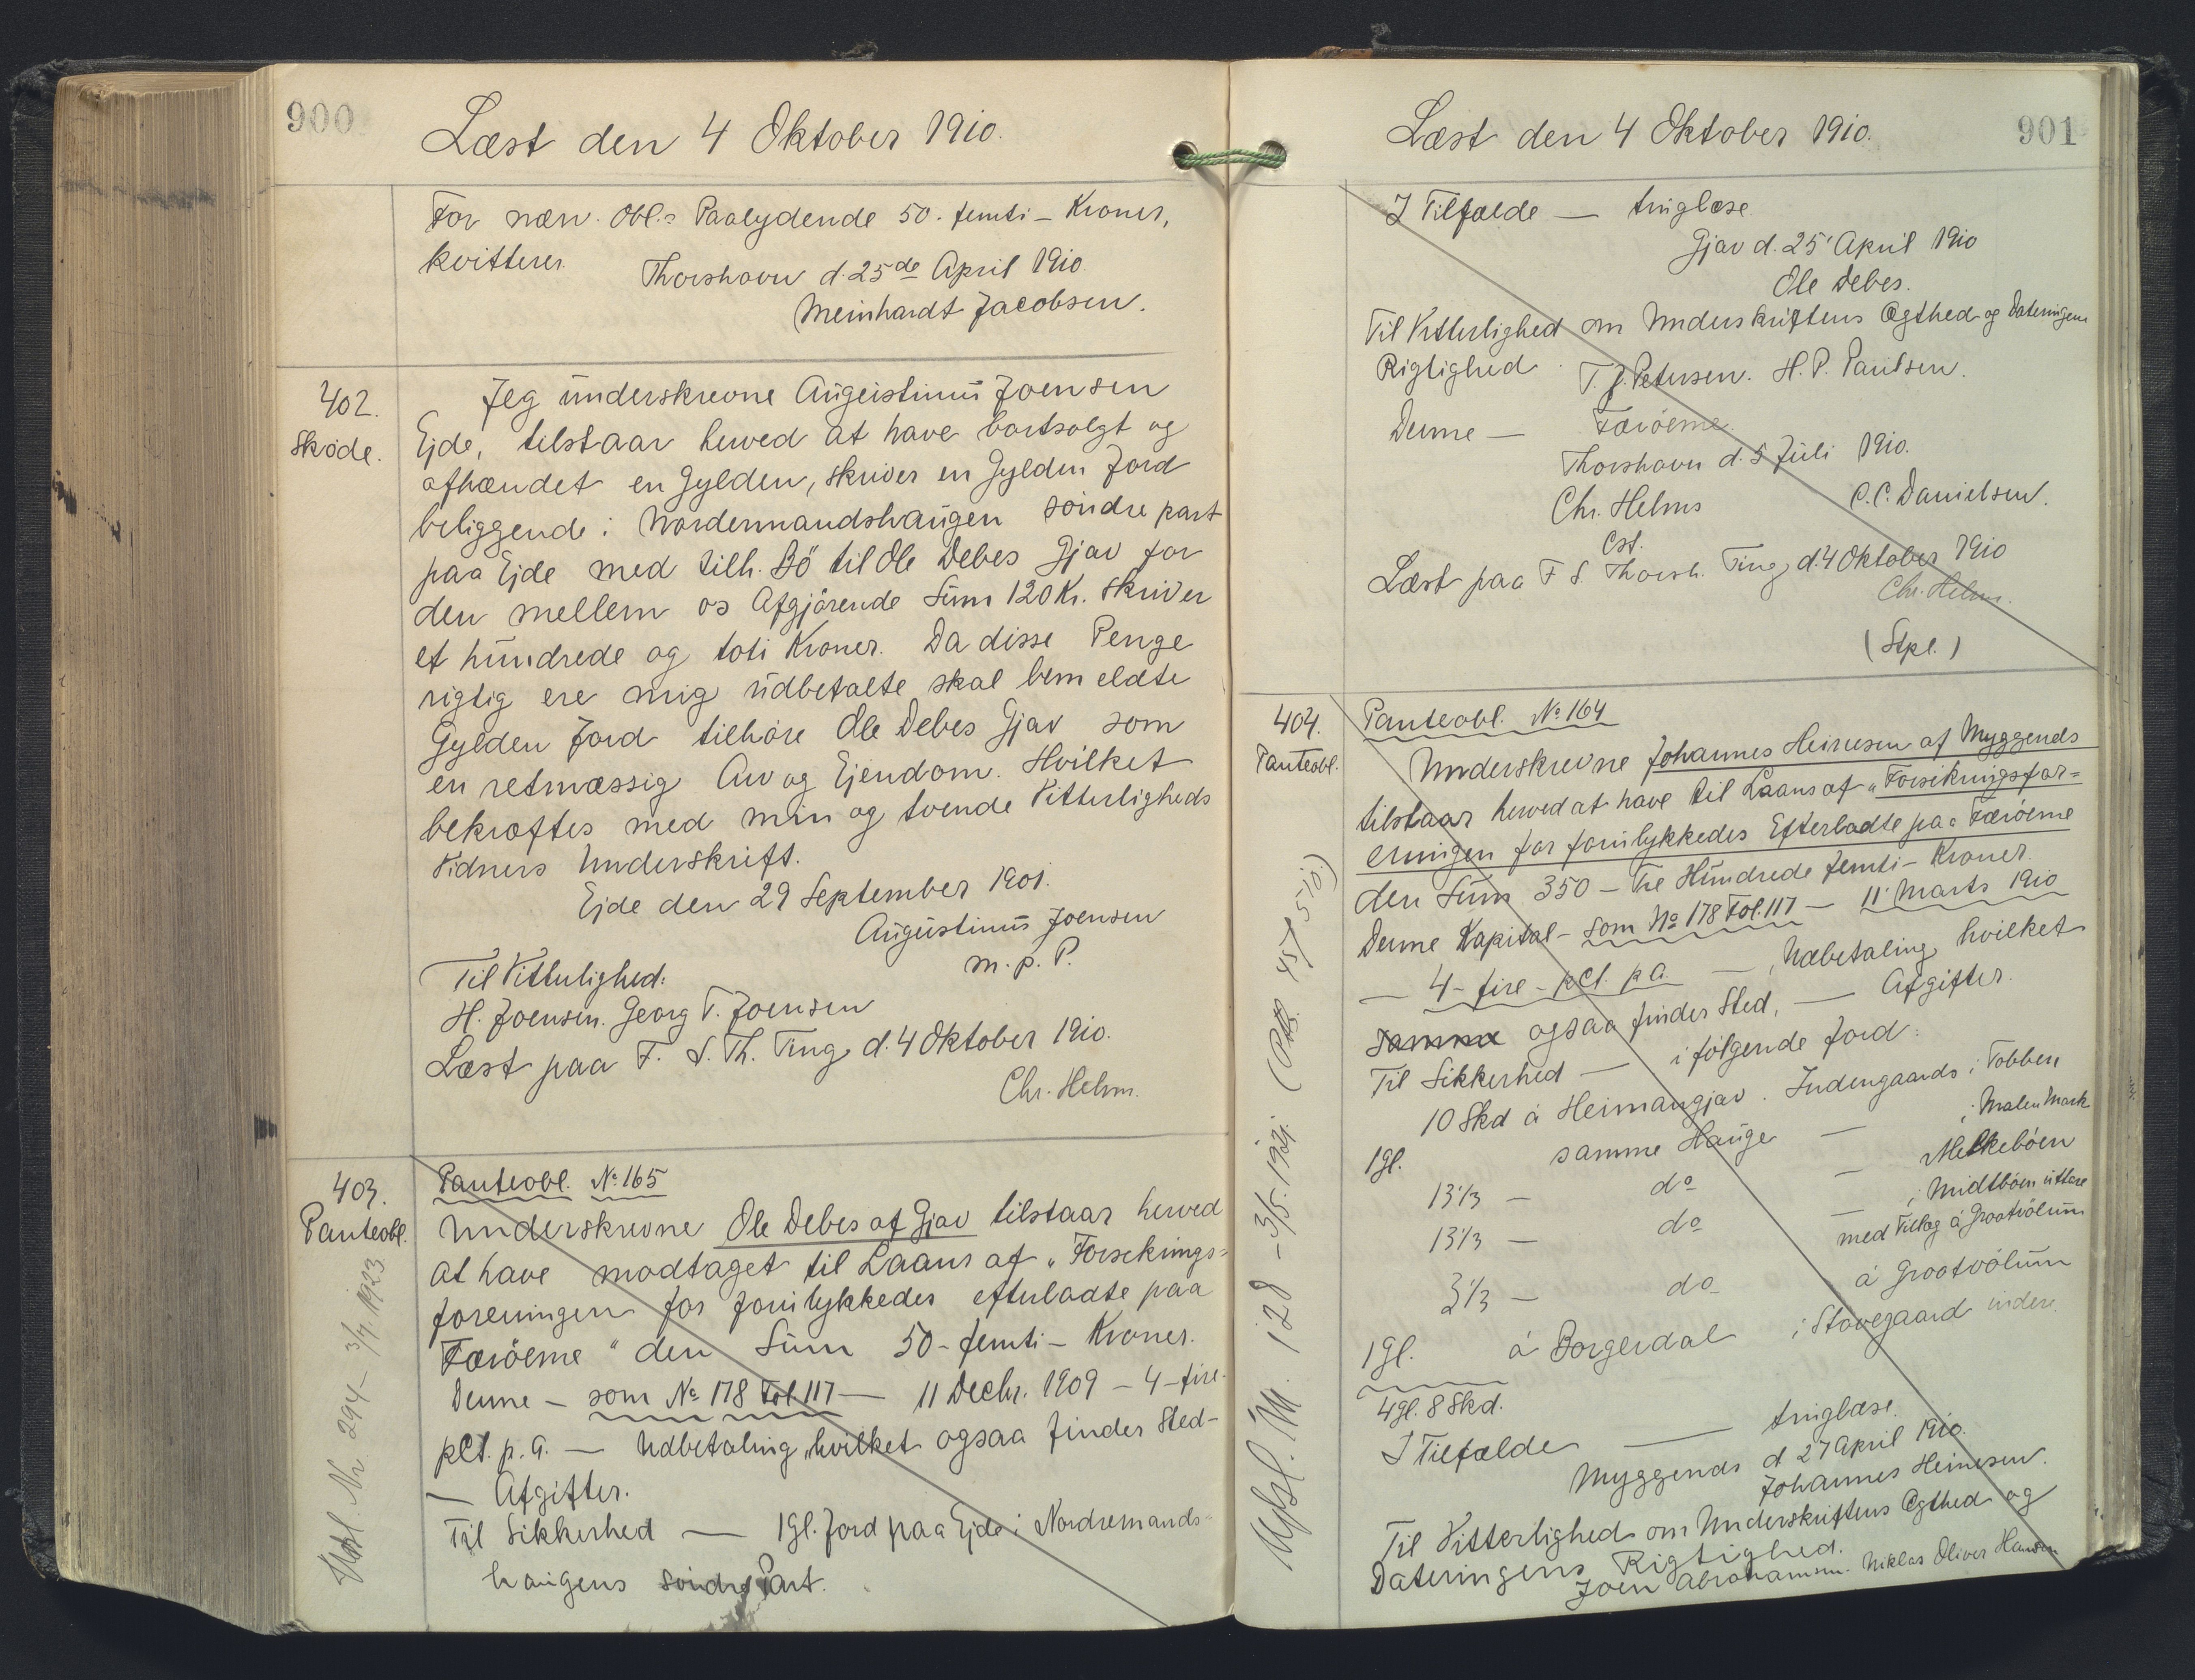 900
Læst den 4 Oktober 1910.
For næv. Obl.s Paalydende 50 - femti - Kroner,
kvitterer.
Thorshavn d. 25de April 1910.
Meinhardt Jacobsen.
402.
Skøde.
Jeg underskrevne Augustinus Joensen
Ejde, tilstaar herved at have bortsolgt og
afhændet en Gylden, skriver en Gylden Jord
beliggende i Nordenmandshaugen søndre part
paa Ejde med tilh. Bö til Ole Debes Gjav for
den mellem os Afgjörende Sum 120 Kr. skriver
et hundrede og toti Kroner. Da disse Penge
rigtig ere mig udbetalte skal bemeldte
Gylden Jord tilhöre Ole Debes Gjav som
en retmæssig Arv og Ejendom. Hvilket
bekræftes med min og tvende Vitterligheds
Vidners Underskrift.
Ejde den 29 September 1901.
Augustinus Joensen
m. p. P.
Til Vitterlighed:
H. Joensen. Georg T. Joensen
Læst paa F. S. Th. Ting d. 4 Oktober 1910.
Chr. Helm.
403.
Panteobl.
Panteobl. No 165
Underskrevne Ole Debes af Gjav tilstaar herved
at have modtaget til Laans af "Forsikrings=
foreningen for forulykkedes efterladte paa
Færöerne" den Sum 50 - femti - Kroner.
Denne - som No 178 Fol 117 — 11 Decbr. 1909 - 4 - fire -
pCt. p. a. — Udbetaling, hvilket ogsaa finder Sted -
— Afgifter.
Til Sikkerhed — 1 Gl. Jord paa Ejde i Nordremands=
haugens Søndre Part.
Nr. 294 - 3/7. 1923
901
Læst den 4 Oktober 1910.
I Tilfælde — tinglæse.
Gjav d. 25 April 1910
Ole Debes.
Til Vitterlighed om Underskriftens Ægthed og Dateringens
Rigtighed. T. J. Petersen. H. P. Paulsen.
Denne — Færöerne.
Thorshavn d. 5 Juli 1910.
Chr. Helms C. C. Danielsen.
Cst.
Læst paa F. S. Thorsh. Ting d. 4 Oktober 1910
Chr. Helm.
(Stpl.)
404.
Panteobl.
Panteobl. No 164
Underskrevne Johannes Heinesen af Myggenæs
tilstaar herved at have til Laans af "Forsikringsfor=
eningen for forulykkedes Efterladte paa Færöerne
den Sum 350 - Tre Hundrede femti - Kroner.
Denne Kapital - som No 178 Fol. 117 - 11 Marts 1910
— 4 - fire - pCt. p a. — Udbetaling, hvilket
samme ogsaa finder Sted, — Afgifter.
Til Sikkerhed — i fölgende Jord:
10 Skd á Heimangjav. Indengaards i Tobben
1 Gl. samme Hauge — i Malen Mark
13 1/3 — do — Melkeböen
13 1/3 — do — i Midtböen uttare
med Tillæg á Grootvölum
3 1/3 — do á Grootvölum
1 Gl. á Borgerdal i Stovegaard indere.
4 Gl. 8 Skd.
I Tilfælde — tinglæse.
Myggenæs d 27 April 1910.
Johannes Heinesen.
Til Vitterlighed om Underskriftens Ægthed og
Dateringens Rigtighed.
Joen Abrahamsen. Niklas Oliver Hansen